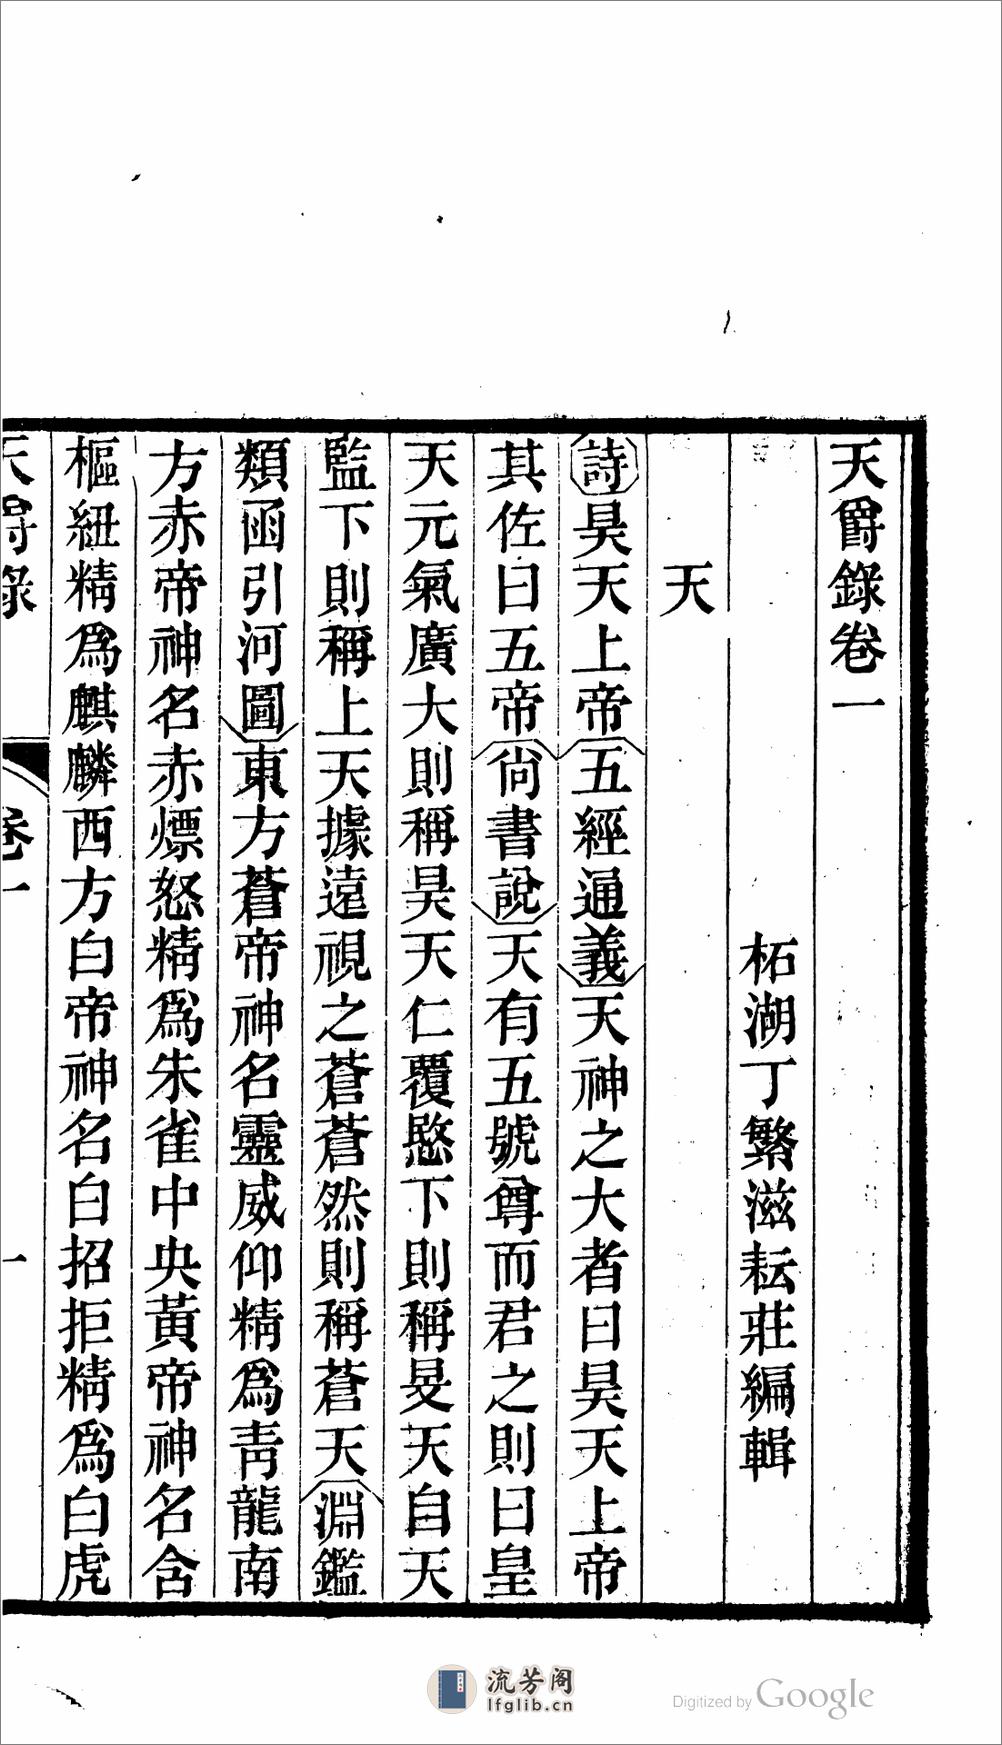 天爵錄卷一
柘湖丁繁滋耘莊編輯
天
詩昊天上帝五經通義天神之大者曰昊天上帝
其佐曰五帝尙書說天有五號尊而君之則曰皇
天元氣廣大則稱昊天仁覆愍下則稱旻天自天
監下則稱上天據遠視之蒼蒼然則稱蒼天淵鑑
類函引河圖東方蒼帝神名靈威仰精爲靑龍南
方赤帝神名赤熛怒精爲朱雀中央黃帝神名含
樞紐精爲麒麟西方白帝神名白招拒精爲白虎
天爵錄
卷一
一
流芳阁
lfglib.cn
Digitized by Google